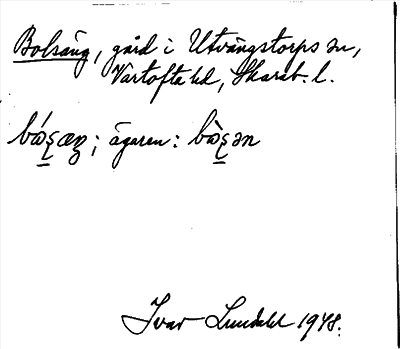 Bolsäng, gård i Utvängstorps sn,
Vartofta hd, Skarab. l.
; ägaren:
Ivar Lundahl 1948.